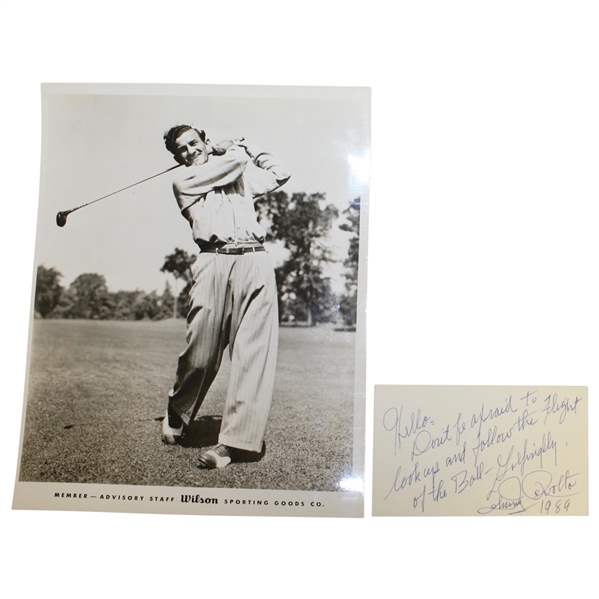 MEMBER — ADVISORY STAFF Wilson SPORTING GOODS CO.
Hello-
Don't be afraid to
look up and follow the Flight
of the Ball - Golfingly.
1989